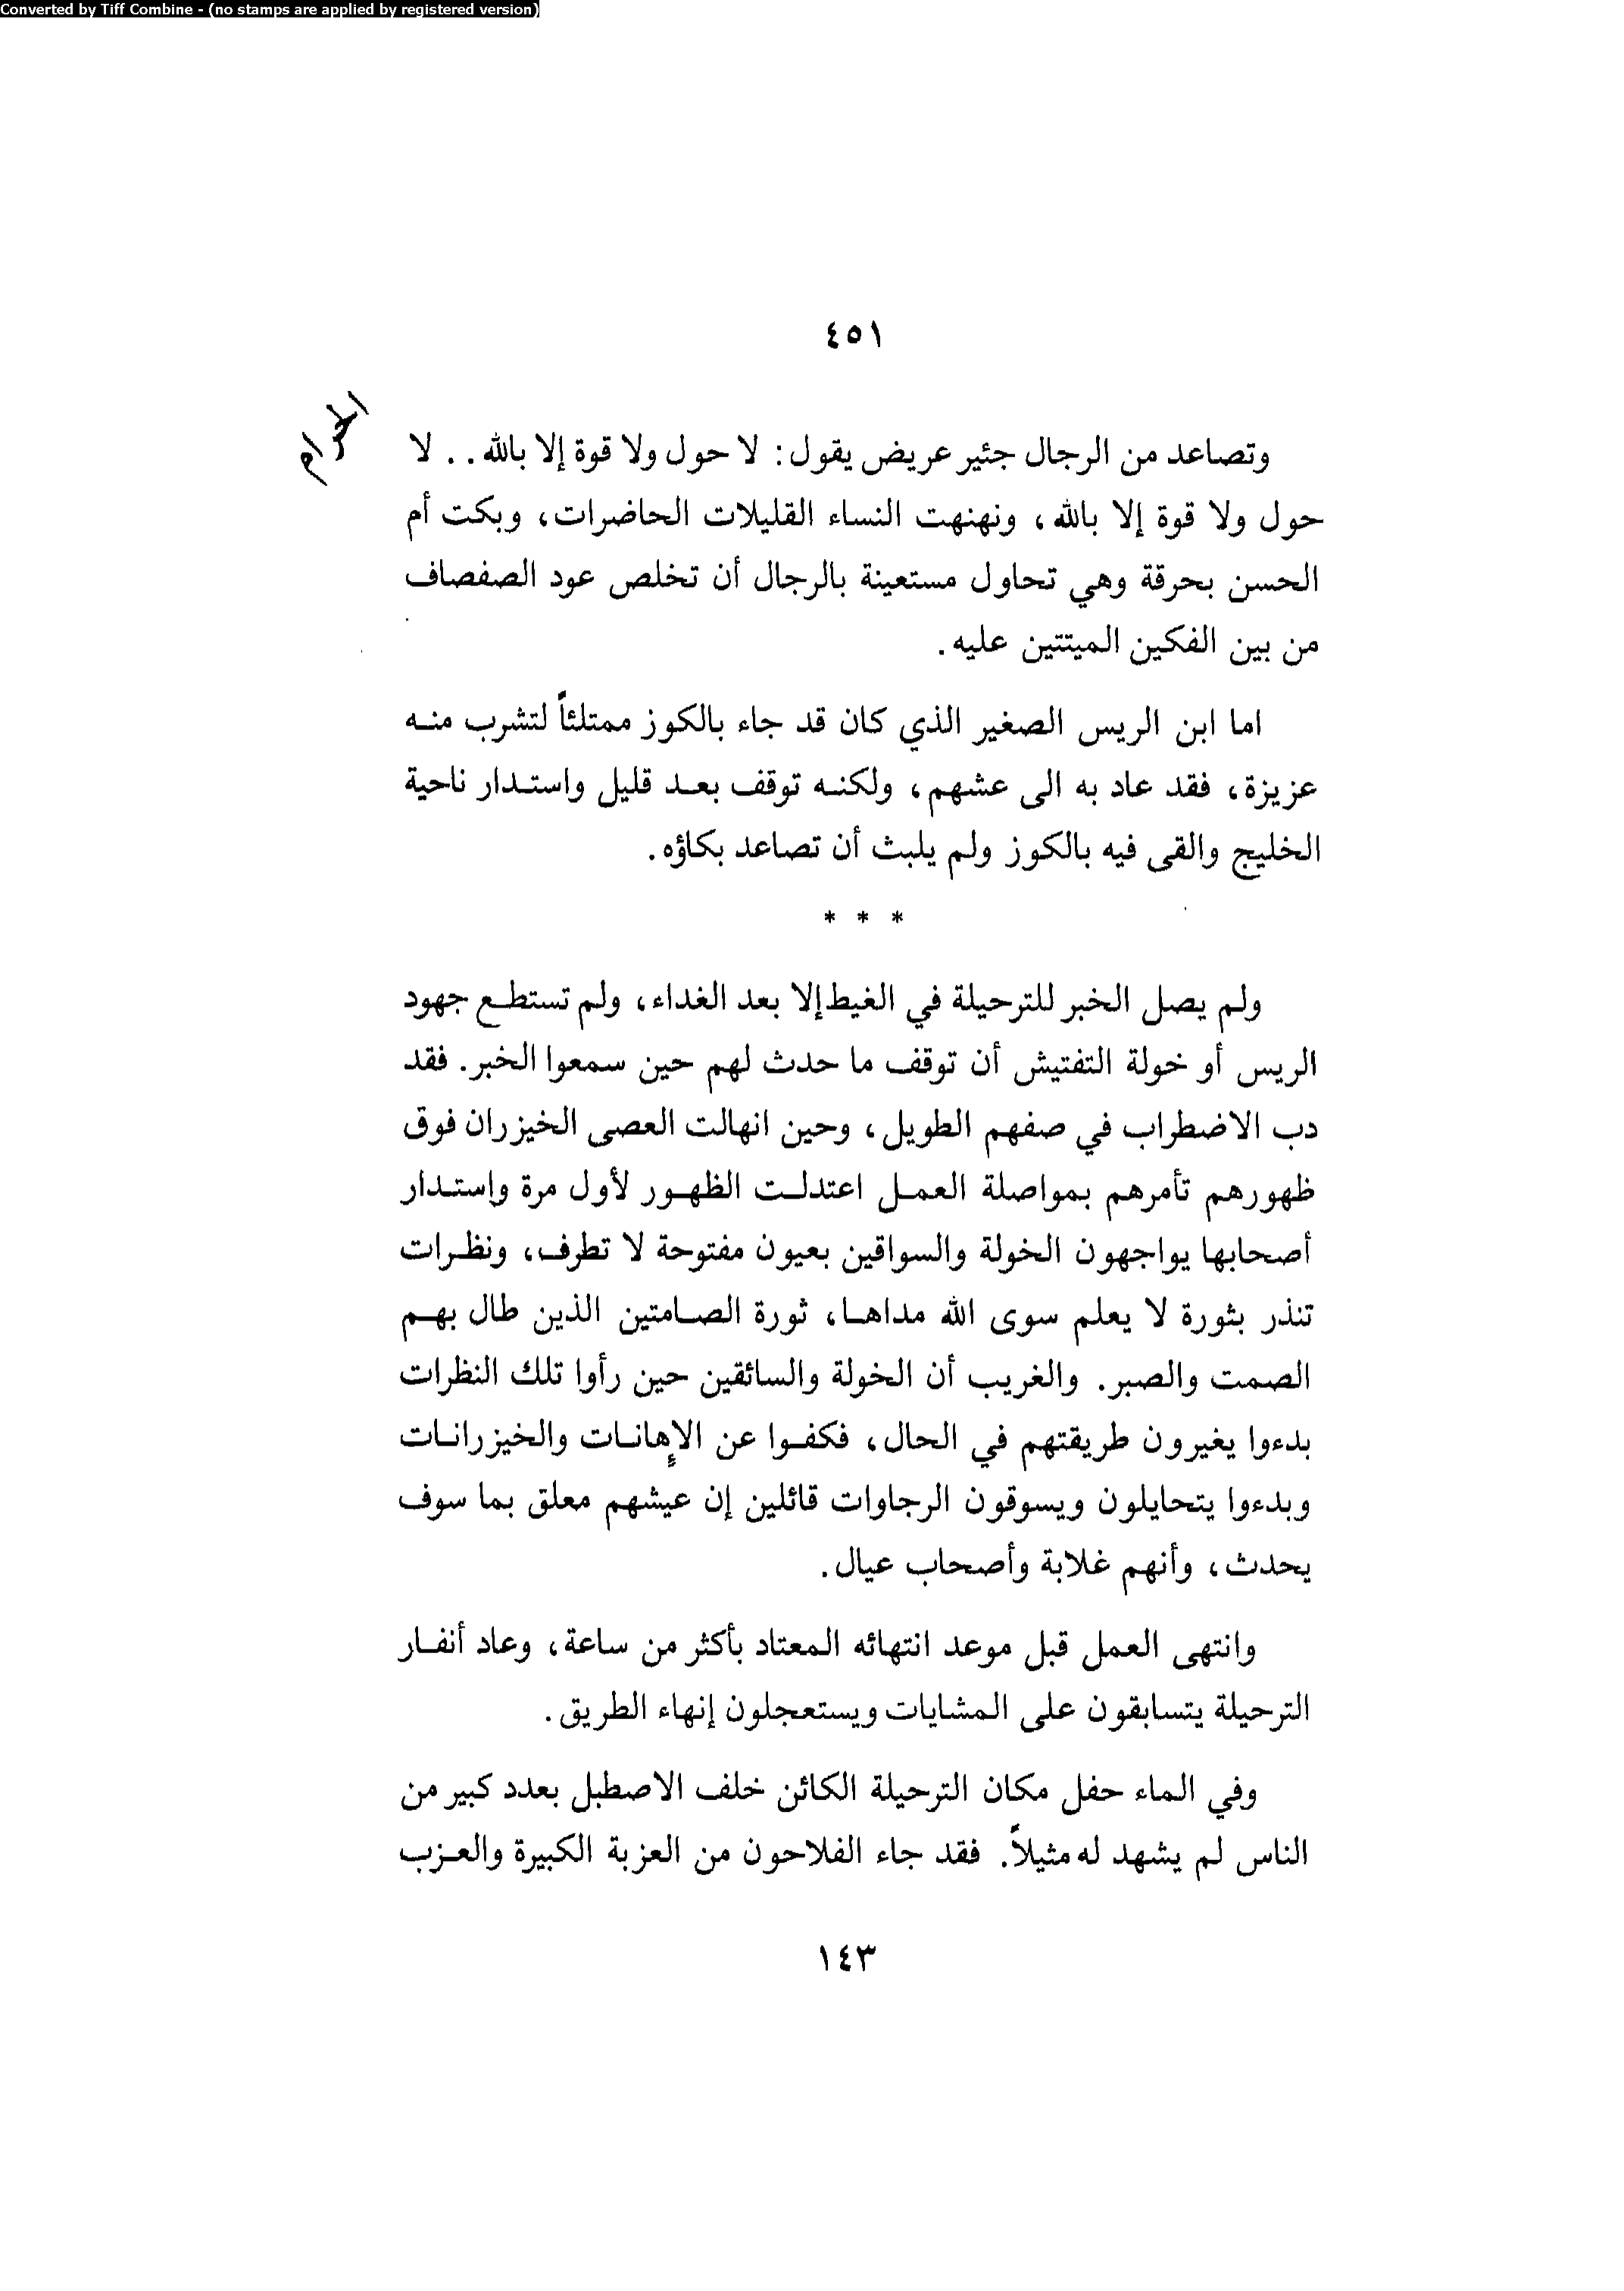 Converted by Tiff Combine - (no stamps are applied by registered version)
٤٥١
الحرام
وتصاعد من الرجال جئير عريض يقول: لا حول ولا قوة إلا بالله.. لا
حول ولا قوة إلا بالله، ونهنهت النساء القليلات الحاضرات، وبكت أم
الحسن بحرقة وهي تحاول مستعينة بالرجال أن تخلص عود الصفصاف
من بين الفكين الميتتين عليه.
اما ابن الريس الصغير الذي كان قد جاء بالكوز ممتلئاً لتشرب منه
عزيزة، فقد عاد به الى عشهم، ولكنه توقف بعد قليل واستدار ناحية
الخليج والقى فيه بالكوز ولم يلبث أن تصاعد بكاؤه.
* * *
ولم يصل الخبر للترحيلة في الغيط إلا بعد الغداء، ولم تستطع جهود
الريس أو خولة التفتيش أن توقف ما حدث لهم حين سمعوا الخبر. فقد
دب الاضطراب في صفهم الطويل، وحين انهالت العصى الخيزران فوق
ظهورهم تأمرهم بمواصلة العمل اعتدلت الظهور لأول مرة واستدار
أصحابها يواجهون الخولة والسواقين بعيون مفتوحة لا تطرف، ونظرات
تنذر بثورة لا يعلم سوى الله مداها، ثورة الصامتين الذين طال بهم
الصمت والصبر. والغريب أن الخولة والسائقين حين رأوا تلك النظرات
بدءوا يغيرون طريقتهم في الحال، فكفوا عن الإهانات والخيزرانات
وبدءوا يتحايلون ويسوقون الرجاوات قائلين إن عيشهم معلق بما سوف
يحدث، وأنهم غلابة وأصحاب عيال.
وانتهى العمل قبل موعد انتهائه المعتاد بأكثر من ساعة، وعاد أنفار
الترحيلة يتسابقون على المشايات ويستعجلون إنهاء الطريق.
وفي الماء حفل مكان الترحيلة الكائن خلف الاصطبل بعدد كبير من
الناس لم يشهد له مثيلاً. فقد جاء الفلاحون من العزبة الكبيرة والعزب
١٤٣